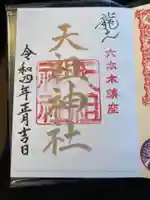 龍土
六本木鎮座
天祖神社
令和四年正月吉日